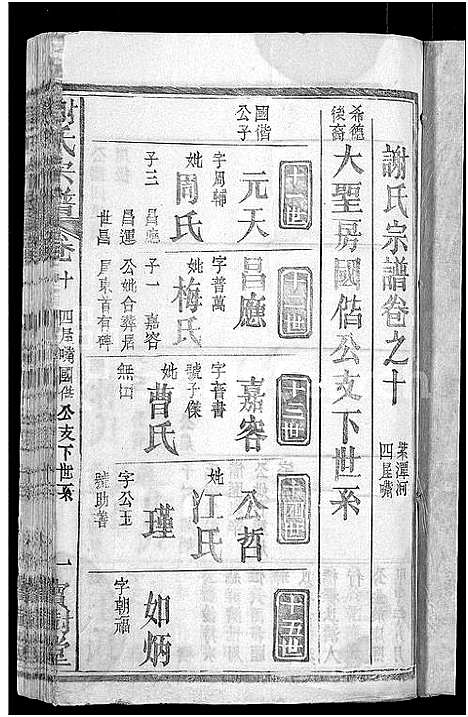 謝氏宗譜卷之十
棠潭河
四屋嘴
希德
後裔
大聖房國偕公支下世系
十一世
十二世
十三世
十四世
十五世
國偕
公子
元天
字周輔
妣
周氏
子三
昌應
昌運
世昌
昌應
字普萬
妣
梅氏
子一 嘉容
公妣合葬居
屋東首有碑
嘉容
字晉書
號子傑
妣
曹氏
無出
公哲
妣
江氏
瑾
字公玉
號助善
如炳
字朝福
謝氏宗譜
卷十
四屋嘴國偕公支下世系
一
寶樹堂